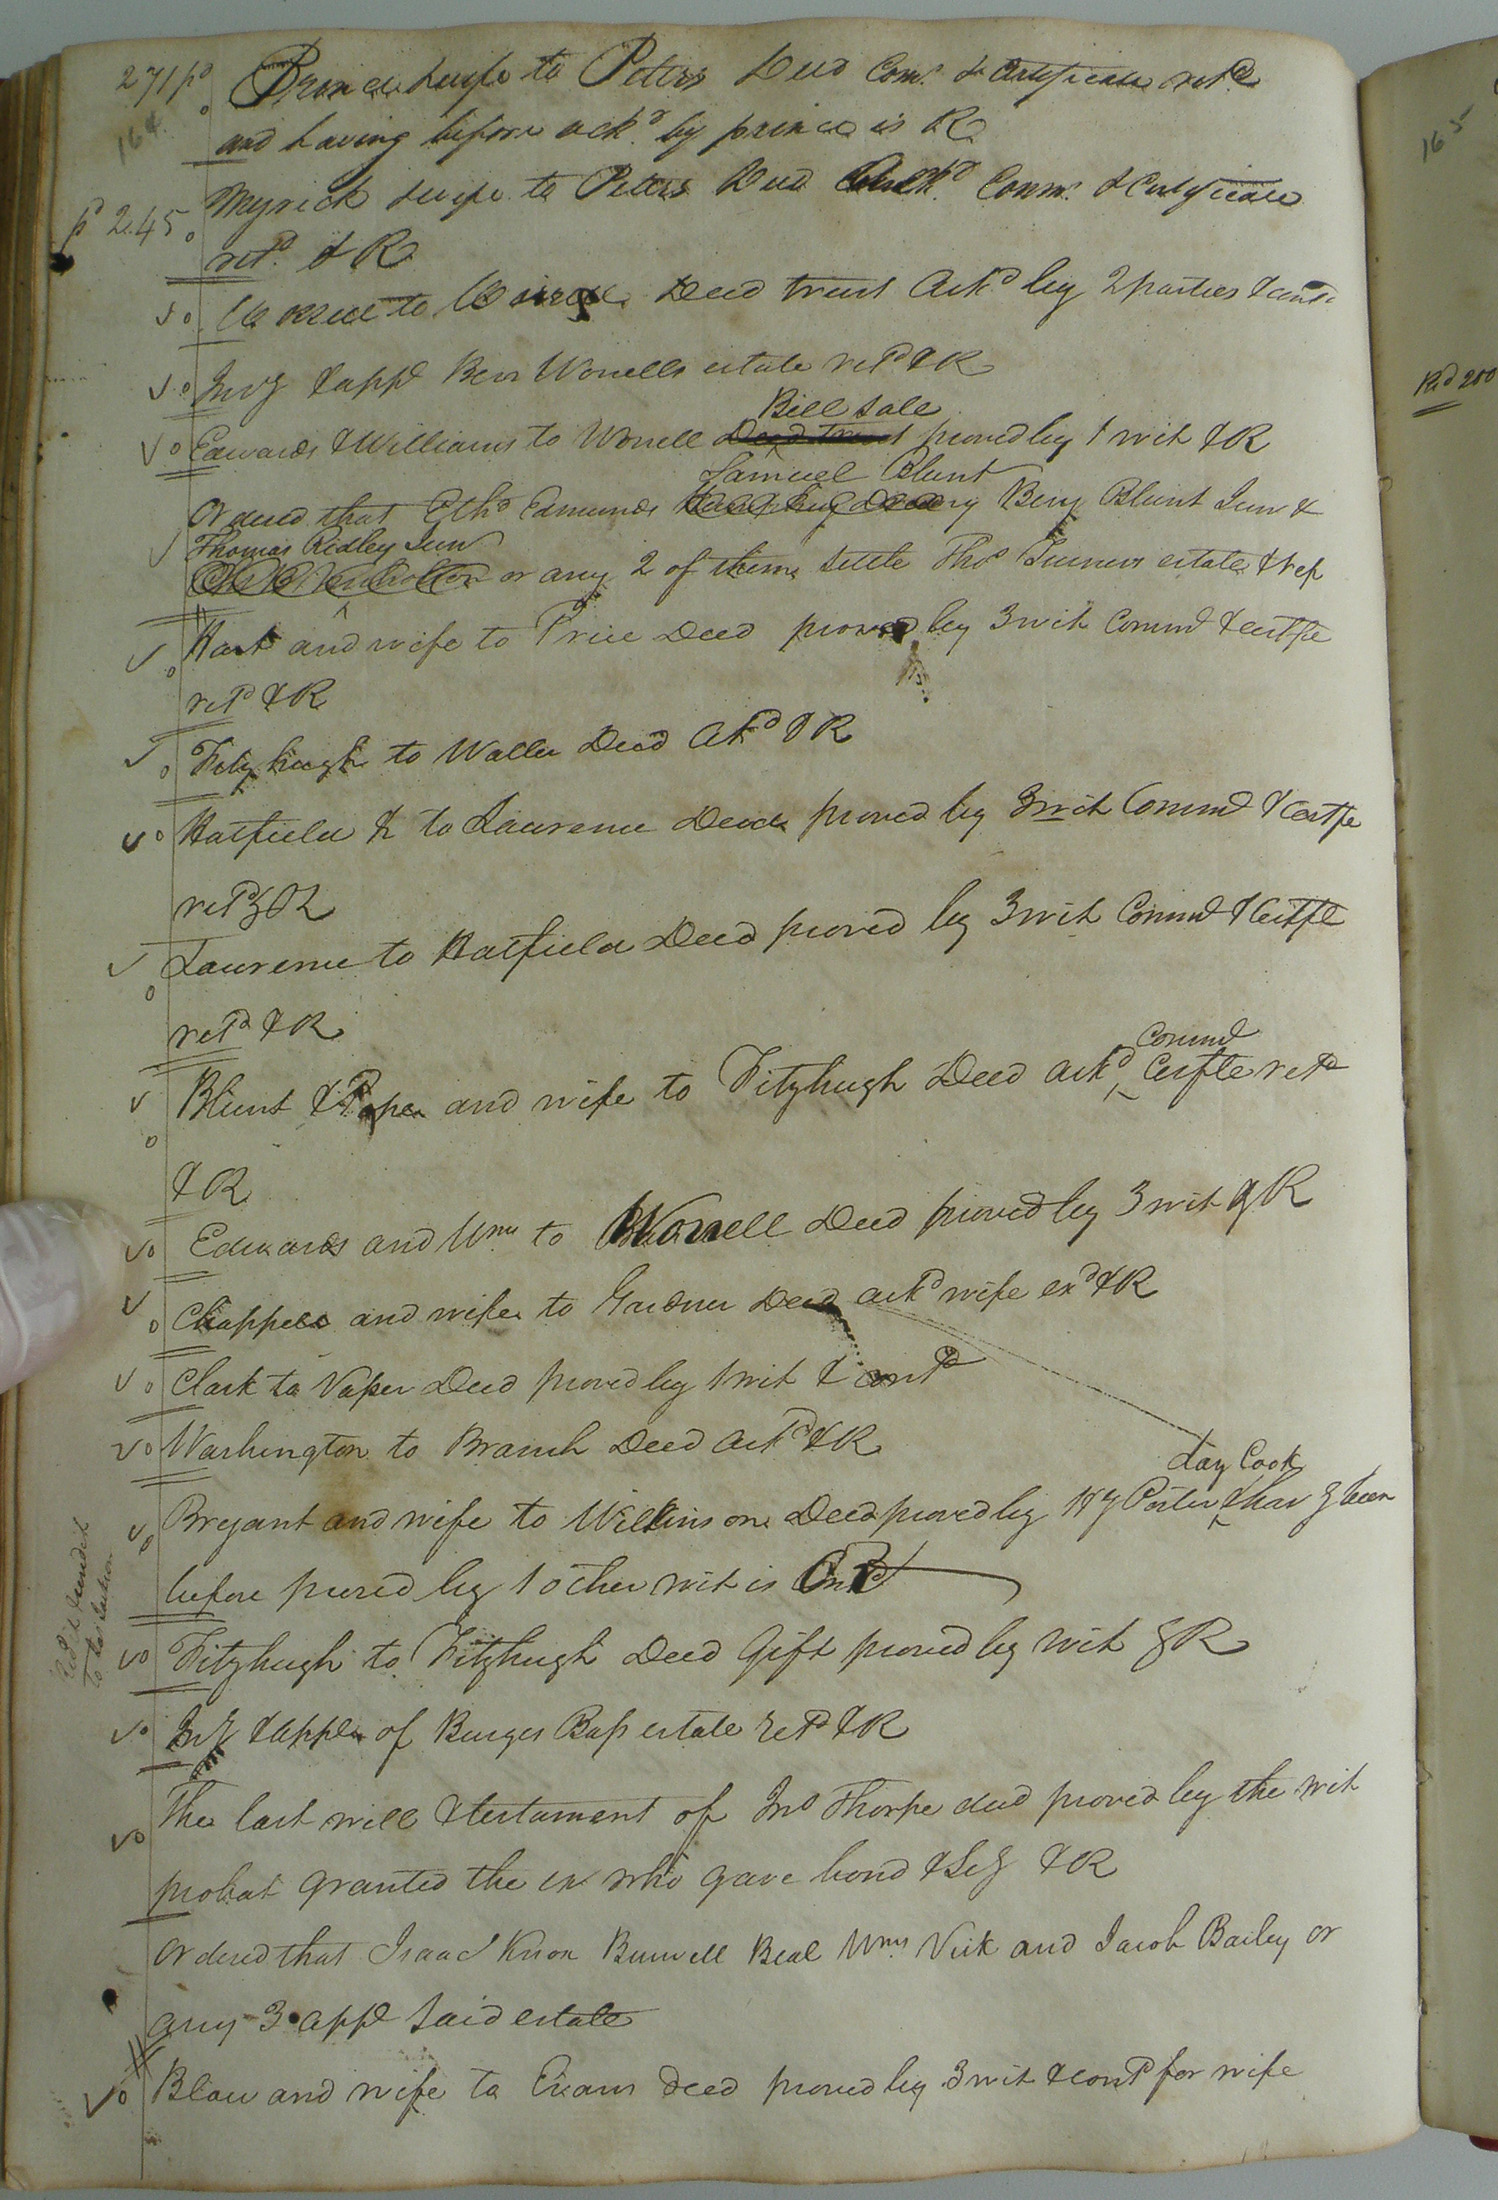 271 pd
164
Prince & wife to Peters Deed Com. & Certificate retd
and having before ackd by prince is R
pd 2.45
Myrick & wife to Peters Deed Comn. & Certificate
retd & R
to Deed trust Ackd by 2 parties &
Invy & appt Ben Worrells estate retd & R
Bill sale
Edwards & Williams to Worrell Deed trust proved by 1 wit & R
Samuel Blunt
Ordered that Ethd Edmunds Benj Blunt Junr &
Thomas Ridley Junr
or any 2 of them settle Thos Turners estate & rep
Hart and wife to Price Deed proved by 3 wit Commd & certfe
retd & R
Fitzhugh to Waller Deed Ackd & R
Hatfield & to Laurence Deed proved by 3 wit Commd & Certfe
retd & R
Laurence to Hatfield Deed proved by 3 wit Commd & Certfe
retd & R
Commd
Blunt & Pope and wife to Fitzhugh Deed ackd Certfe retd
& R
Edwards and Wms to Worrell Deed proved by 3 wit & R
Chappell and wife to Gardner Deed ackd wife exd & R
Clark to Vaper Deed proved by 1 wit & contd
Washington to Branch Deed Ackd & R
Lay Cook
Bryant and wife to Wilkinson Deed proved by Hy Porter & havg been
before proved by 1 other wit is Contd
Fitzhugh to Fitzhugh Deed Gift proved by wit & R
Invy & appt of Burges Bass estate retd & R
The last will & testament of Jno Thorpe decd proved by the wit
probat granted the ex who gave bond & Sey & R
Ordered that Isaac Knox Burwell Beal Wms Vick and Jacob Bailey or
any 3 appt said estate
Blow and wife to Evans deed proved by 3 wit & contd for wife
165
Red 200